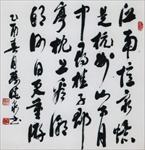 江南憶最憶
是杭州山寺月
中尋桂子郡
亭枕上看潮
頭何日更重游
乙酉春月